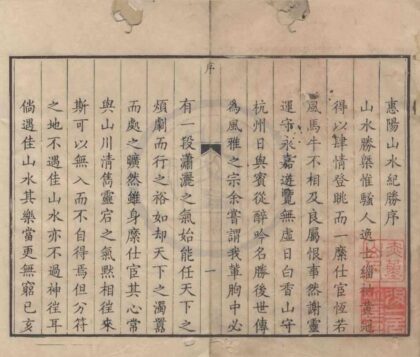 惠陽山水紀勝序
山水勝槩惟騷人逸士緇衲黃冠
得以肆情登眺而一縻仕宦恆若
風馬牛不相及良屬恨事然謝靈
運守永嘉遊覽無虛日白香山守
杭州日與賓從醉吟名勝後世傳
為風雅之宗余嘗謂我輩胸中必
序
一
有一段瀟灑之氣始能任天下之
煩劇而行之裕如却天下之濁囂
而處之曠然雖身縻仕宦其心常
與山川清雋靈宕之氣黙相徃來
斯可以無入而不自得焉但分符
之地不遇佳山水亦不過神徃耳
倘遇佳山水其樂當更無窮已亥